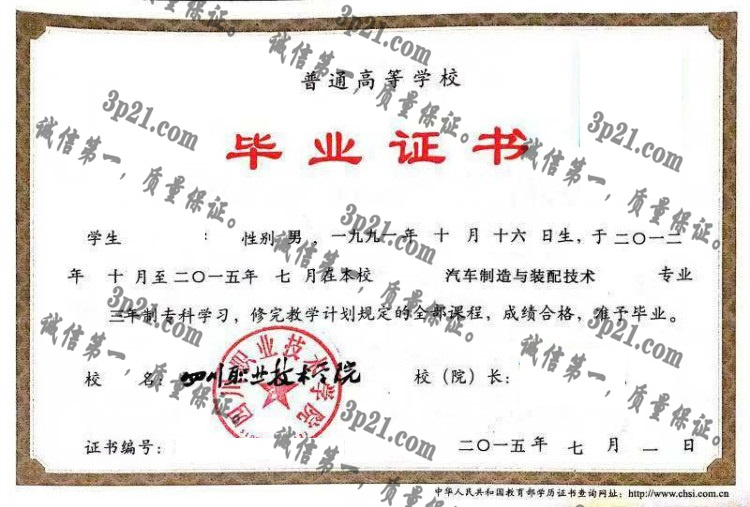 普通高等学校
毕业证书
学生 : 性别 男 , 一九九一年 十 月 十六 日生,于二〇一二
年 十 月至二〇一五年 七 月在本校 汽车制造与装配技术 专业
三年制专科学习,修完教学计划规定的全部课程,成绩合格,准予毕业。
校 名:四川职业技术学院 校(院)长:
四川职业技术学院
证书编号: 二〇一五年 七 月 一 日
中华人民共和国教育部学历证书查询网址:http://www.chsi.com.cn
3p21.com
诚信第一,质量保证。
3p21.com
诚信第一,质量保证。
3p21.com
诚信第一,质量保证。
3p21.com
诚信第一,质量保证。
3p21.com
诚信第一,质量保证。
3p21.com
诚信第一,质量保证。
3p21.com
诚信第一,质量保证。
3p21.com
诚信第一,质量保证。